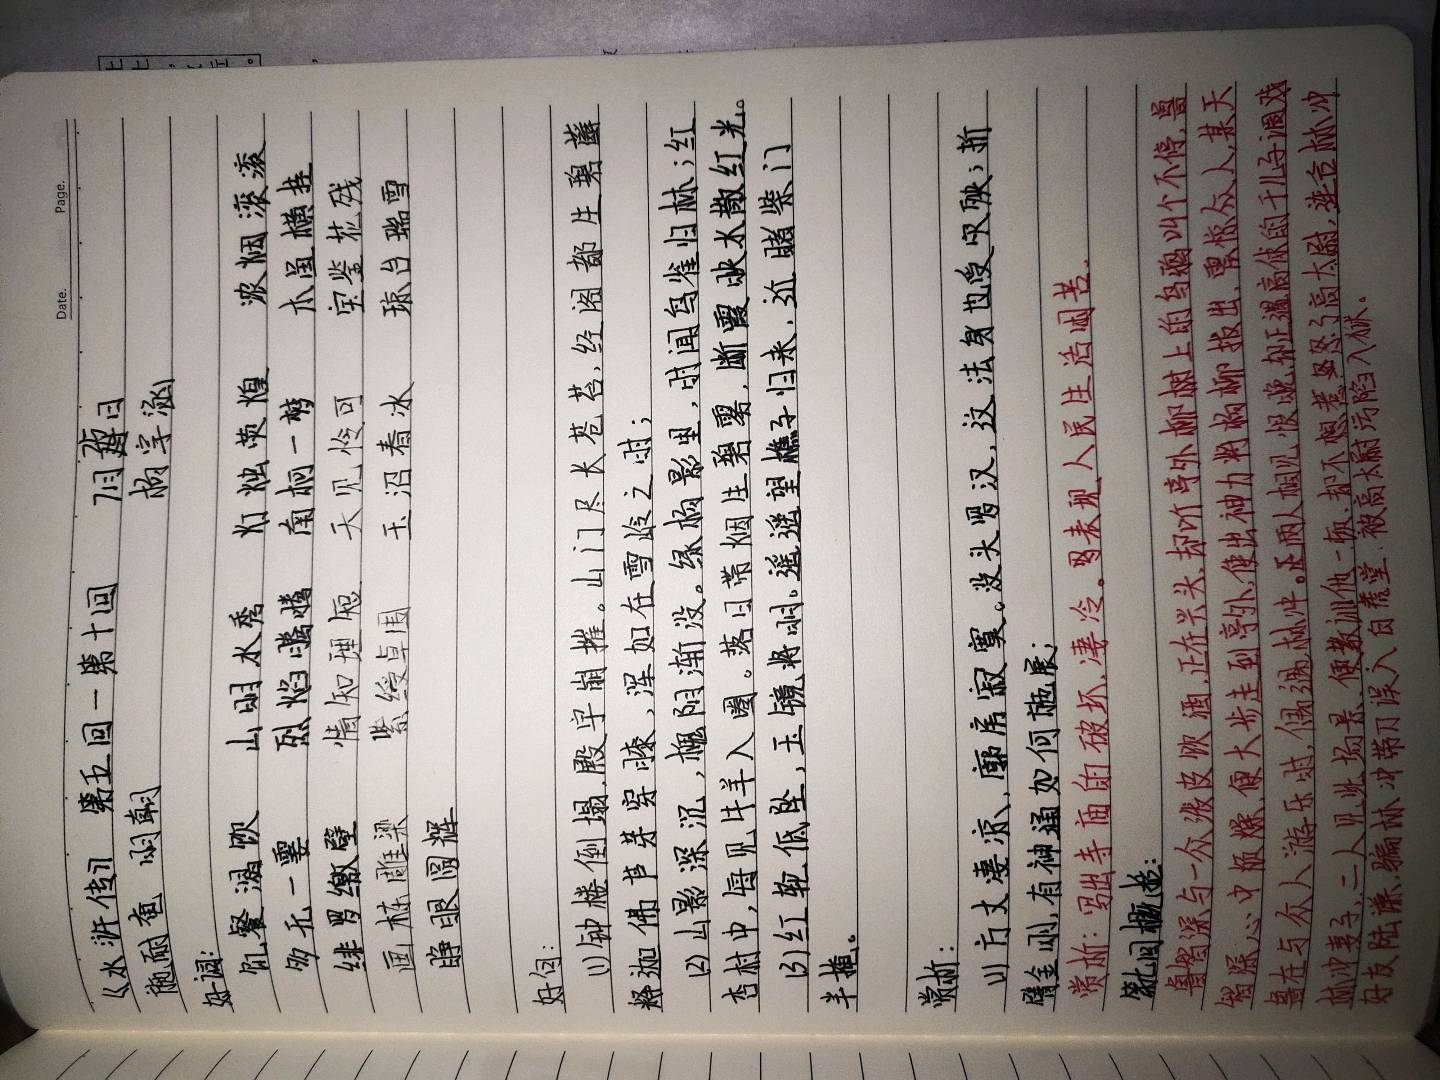 Date. Page.
《水浒传》 第五回—第十回 7月
施耐庵 明朝 杨宇涵
好词:
饥餐渴饮 山明水秀 灯烛荧煌 浓烟滚滚
烈焰腾腾 南柯一梦 木固横拄
绯罗缴壁 情知理短 天见怜可 宝鉴花残
画栋雕梁 紫绶卓围 玉沼春冰 琼台瑞雪
睁眼圆辉
好句:
(1)钟楼倒塌,殿宇崩摧。山门尽长苍苔,经阁都生碧藓
释迦佛芦芽穿膝,浑如在雪岭之时;
(2)山影深沉,槐阴渐没。绿杨影里,时闻鸟雀归林;红
杏村中,每见牛羊入圈。落日带烟生碧雾,断霞映水散红光。
(3)红轮低坠,玉镜将明。遥望樵子归来,近睹柴门
半掩。
赏析:
(1)方丈凄凉,廊房寂寞。没头罗汉,这法身也受灾殃;折
臂金刚,有神通如何施展;
赏析:写出寺庙的破坏、凄冷。另表现人民生活困苦.
第七回概述:
鲁智深与一众泼皮饮酒,正在兴头,却听亭外柳树上的乌鸦叫个不停,鲁
智深心中极躁,便大步走到亭外,使出神力将杨柳拔出,震惊众人,某天
鲁在与众人游乐时,偶遇林冲。正两人相见恨晚,却正遇高俅的干儿子调戏
林冲妻子,二人见此场景,便教训他一顿,却不想惹怒了高太尉,连合林冲
好友陆谦,骗林冲带刀误入白虎堂,被高太尉污陷入狱。